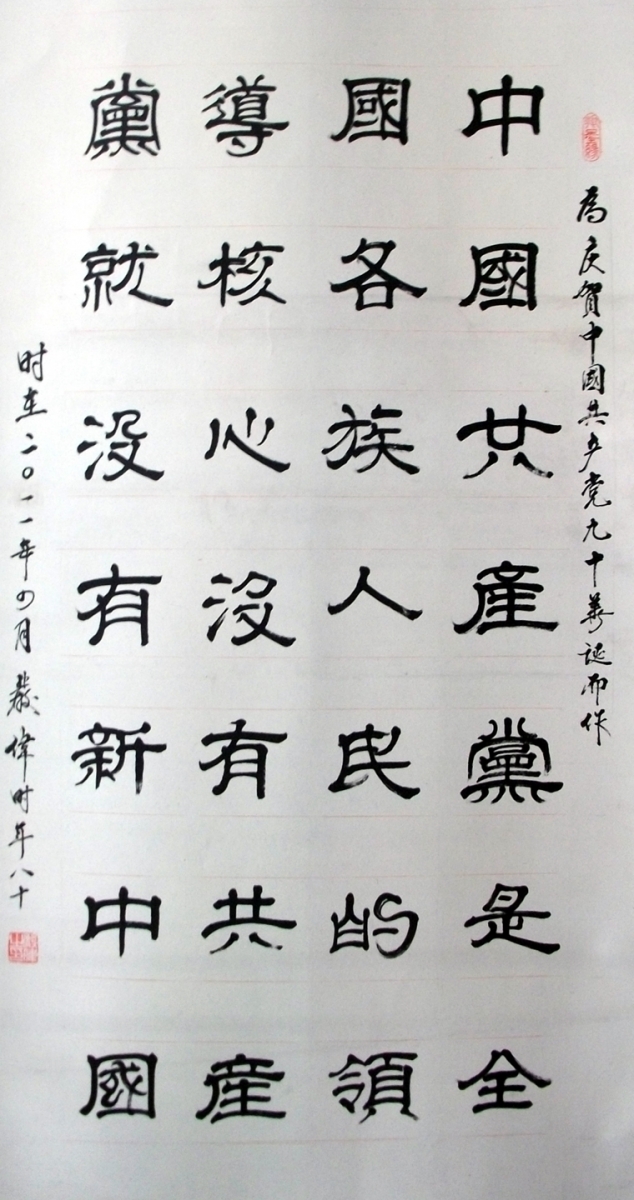 為庆贺中國共产党九十華诞而作
中國共產黨是全
國各族人民的領
導核心没有共產
黨就没有新中國
时在二〇一年四月 偉时年八十